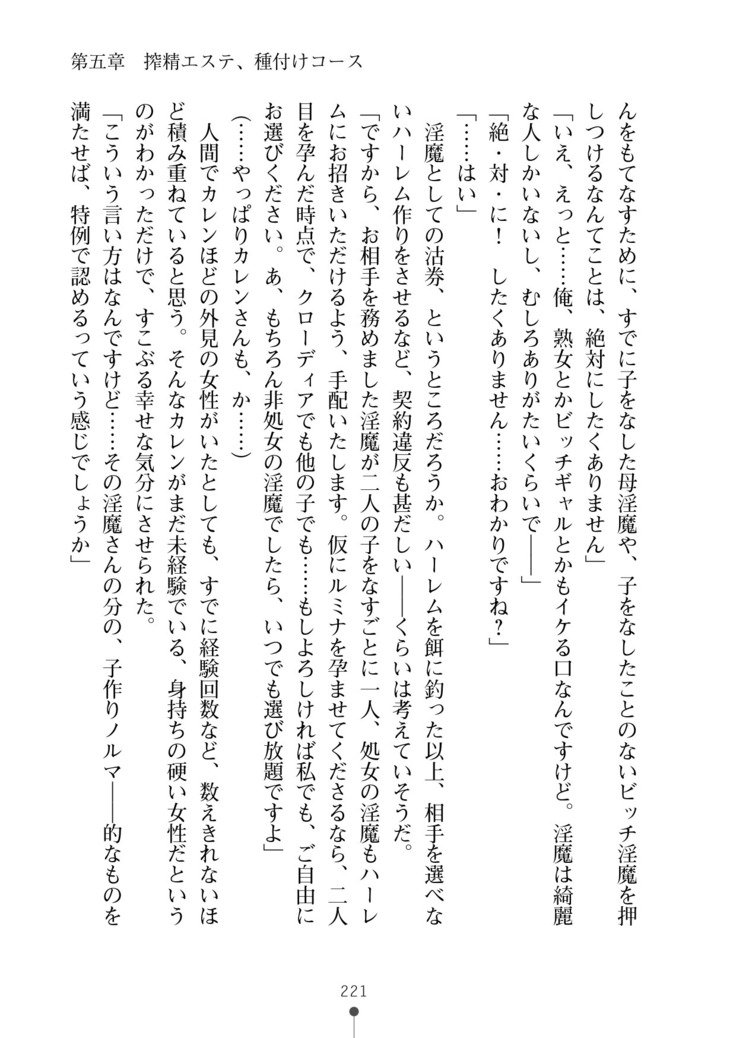 第五章　搾精エステ、種付けコース
んをもてなすために、すでに子をなした母淫魔や、子をなしたことのないビッチ淫魔を押
しつけるなんてことは、絶対にしたくありません」
「いえ、えっと……俺、熟女とかビッチギャルとかもイケる口なんですけど。淫魔は綺麗
な人しかいないし、むしろありがたいくらいで――」
「絶・対・に！　したくありません……おわかりですね？」
「……はい」
　淫魔としての沽券、というところだろうか。ハーレムを餌に釣った以上、相手を選べな
いハーレム作りをさせるなど、契約違反も甚だしい――くらいは考えていそうだ。
「ですから、お相手を務めました淫魔が二人の子をなすごとに一人、処女の淫魔もハーレ
ムにお招きいただけるよう、手配いたします。仮にルミナを孕ませてくださるなら、二人
目を孕んだ時点で、クローディアでも他の子でも……もしよろしければ私でも、ご自由に
お選びください。あ、もちろん非処女の淫魔でしたら、いつでも選び放題ですよ」
（……やっぱりカレンさんも、か……）
　人間でカレンほどの外見の女性がいたとしても、すでに経験回数など、数えきれないほ
ど積み重ねていると思う。そんなカレンがまだ未経験でいる、身持ちの硬い女性だという
のがわかっただけで、すこぶる幸せな気分にさせられた。
「こういう言い方はなんですけど……その淫魔さんの分の、子作りノルマ――的なものを
満たせば、特例で認めるっていう感じでしょうか」
221